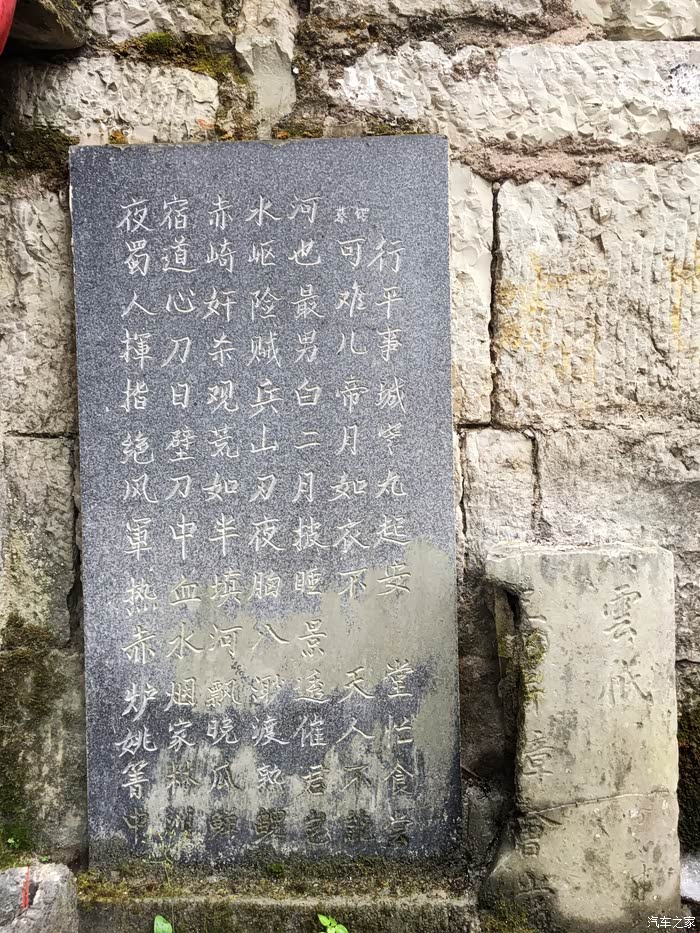 行平事城窄九起安 堂忙食云
可难儿帝月如衣不 天人不
河也最男白二月披睡景遥催君
水岖险贼兵山刃夜胸八渺渡熟鲤
赤崎奸杀观荒如半填河飘晚瓜鲜
宿道心刀日壁刀中血水烟家林
夜蜀人揮指绝风軍热赤炉姚箐中
雲
章會
汽车之家